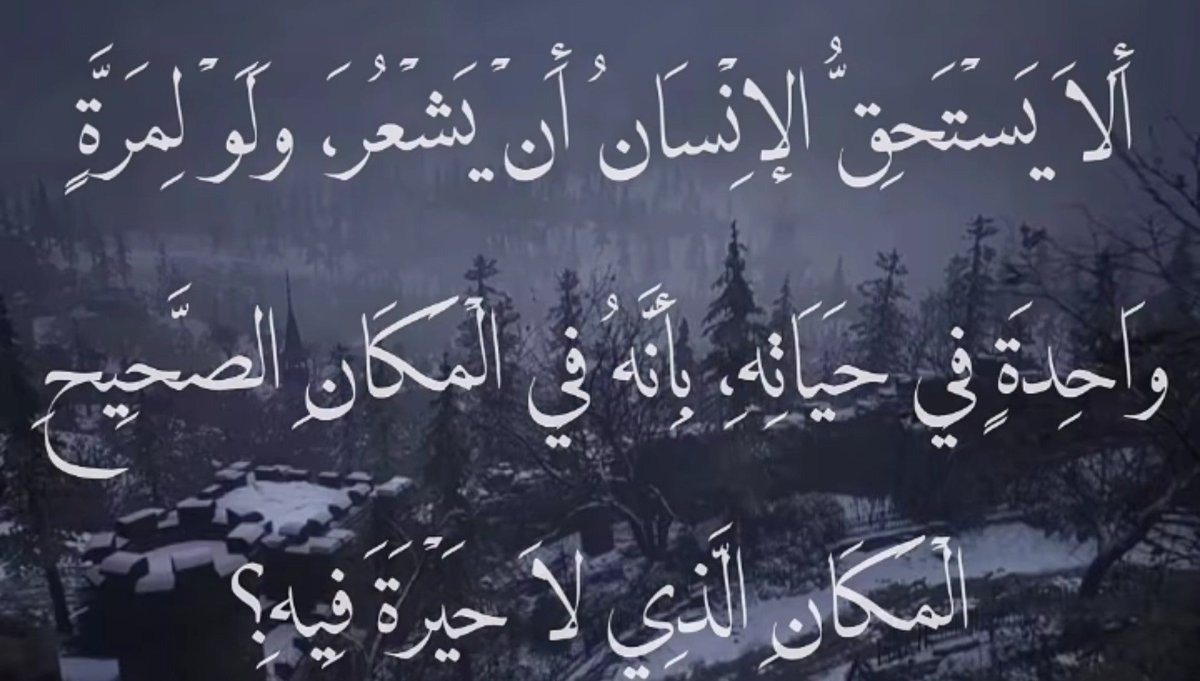 أَلاَ يَسْتَحِقُّ الإِنْسَانُ أَنْ يَشْعُرَ، وَلَوْ لِمَرَّةٍ
وَاحِدَةٍ فِي حَيَاتِهِ، بِأَنَّهُ فِي الْمَكَانِ الصَّحِيحِ
الْمَكَانِ الَّذِي لاَ حَيْرَةَ فِيهِ؟